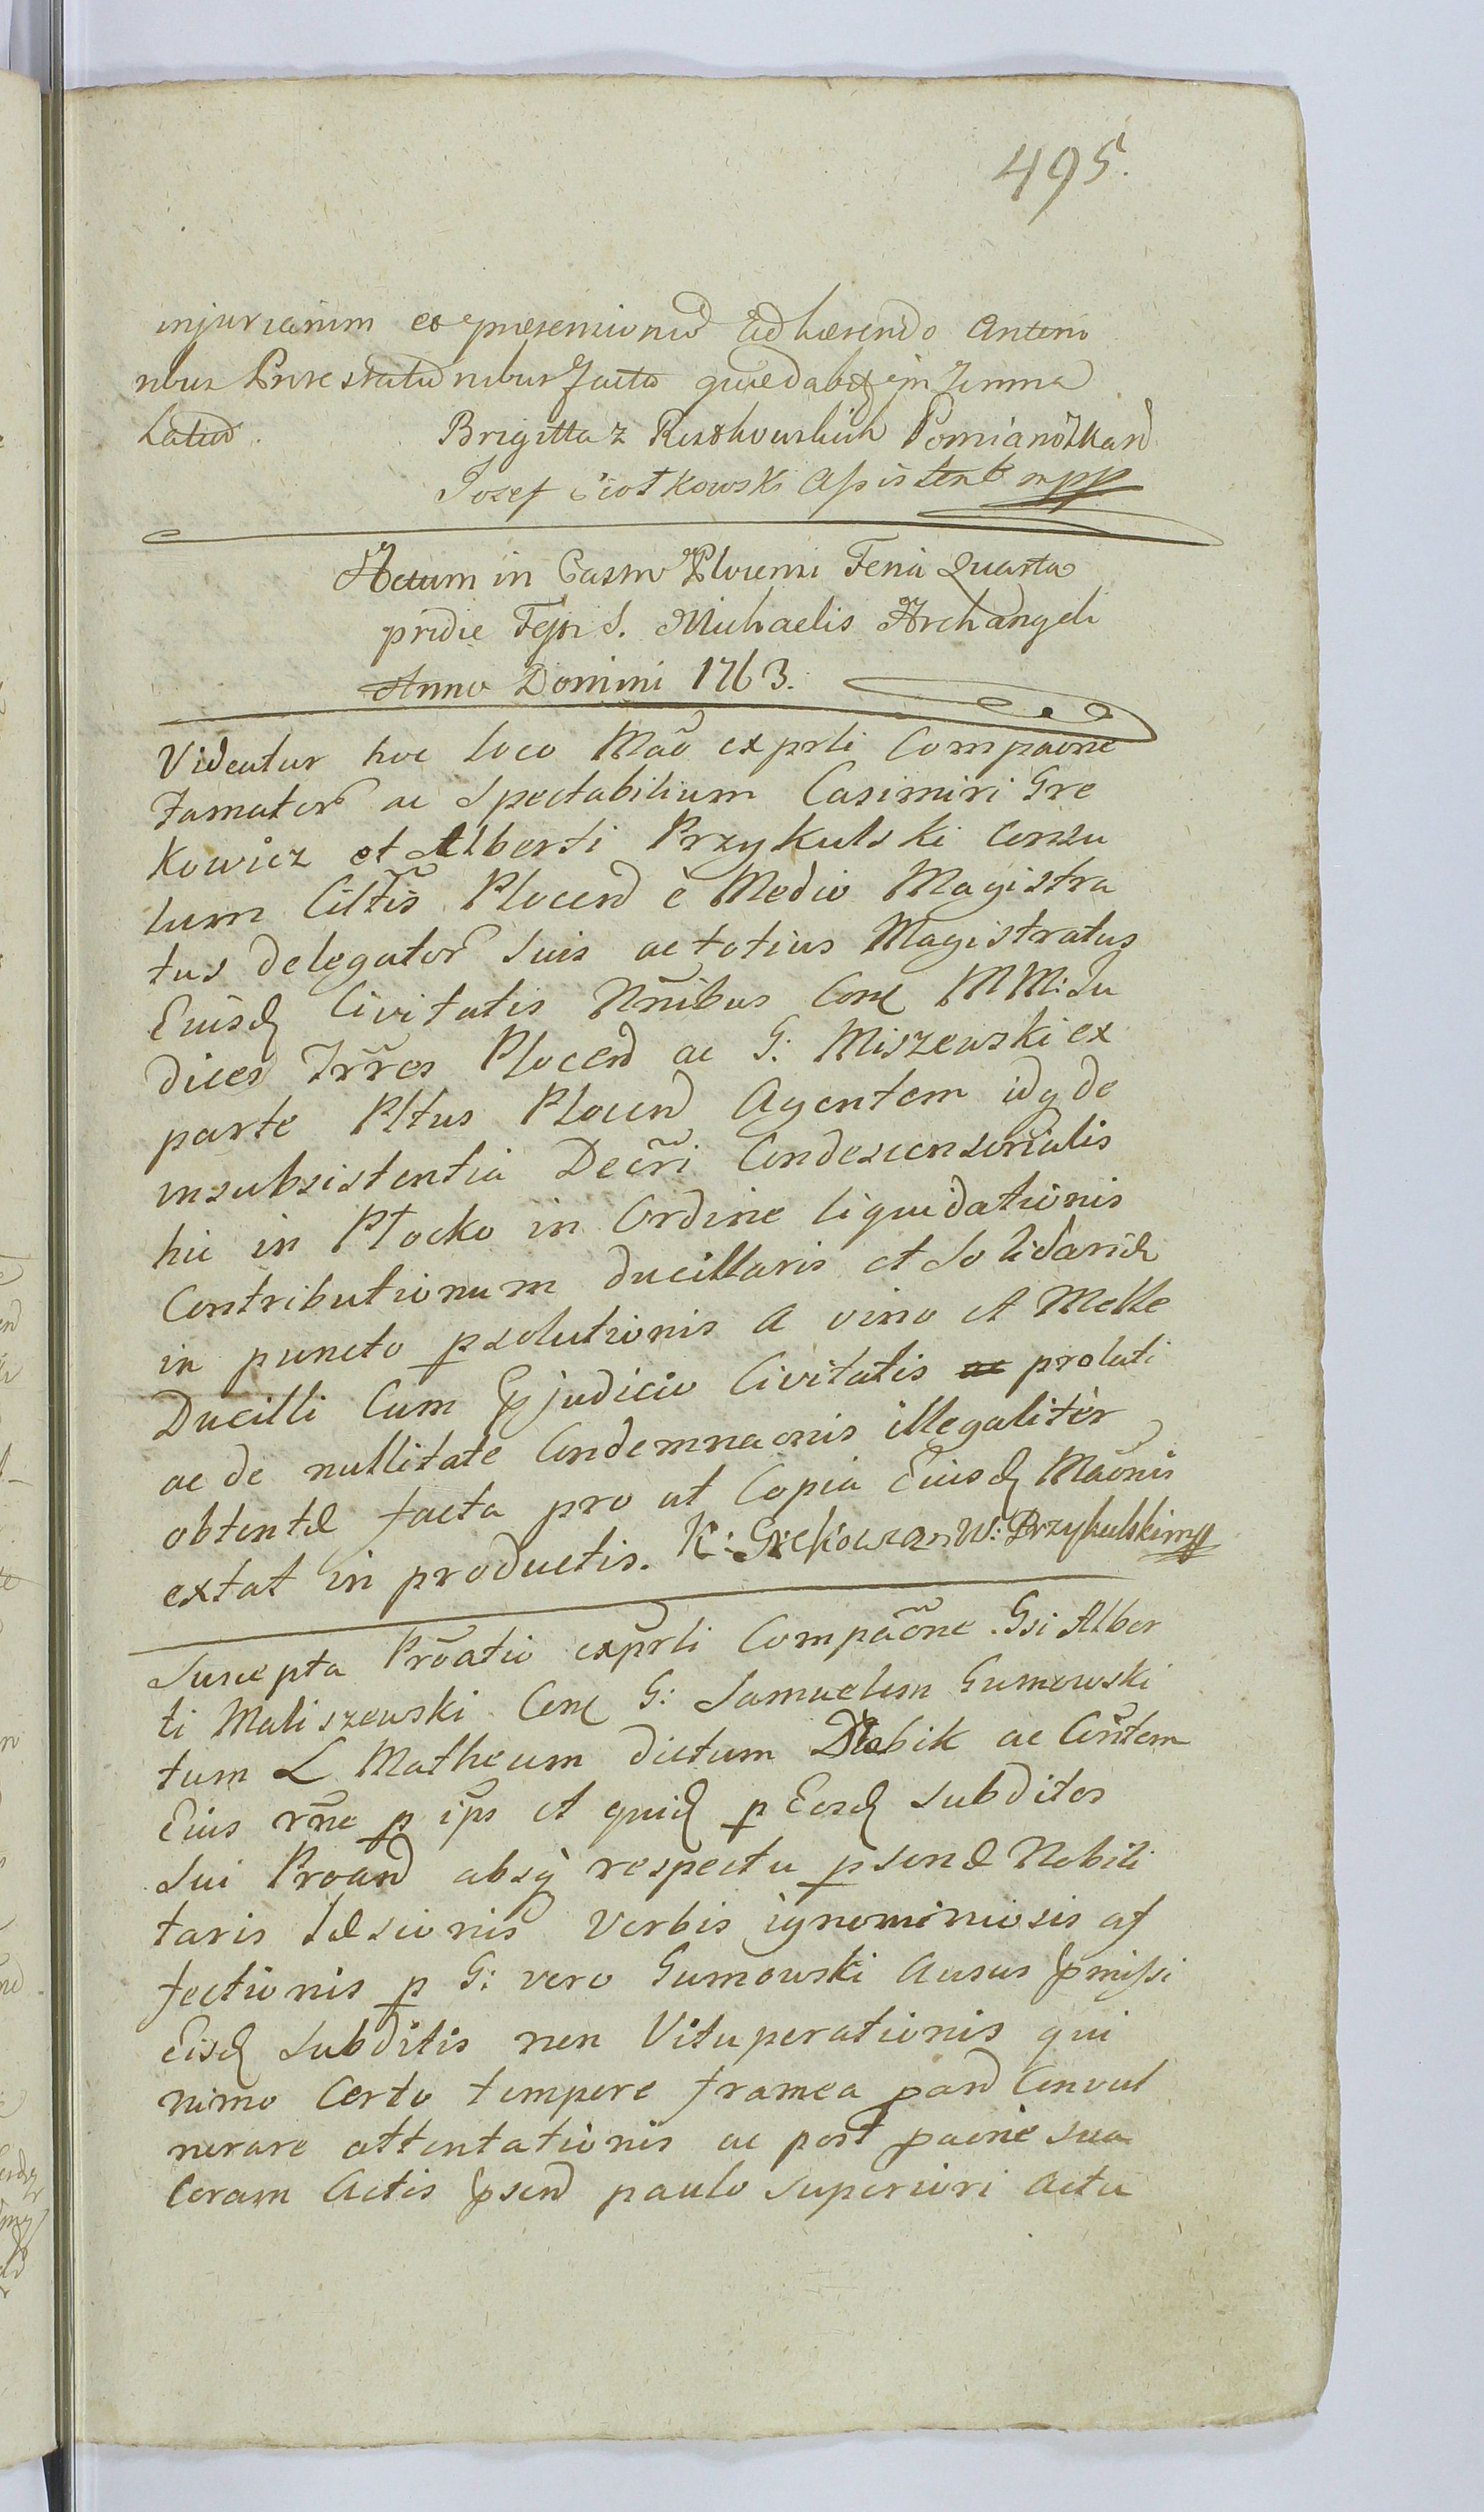 495.
injuriarum et praetensionis adhaerendo anterio
ribus Protestationibus facta quae dabitur in
latius. Brigitta z Reszkowskich Pomianowska
Josef Ciotkowski Assistent mpp
Actum in Castro Plocensi Feria Quarta
pridie Festi S. Michaelis Archangeli
Anno Domini 1763.
Videatur hoc loco Mãõ ex prli Compãone
Famator ac Spectabilium Casimiri Gre
kowicz et Alberti Przykulski Consu
lum Cittis Plocen è Medio Magistra
tus delegator suis ac totius Magistratus
Eiusd Civitatis Nñibus Con MM: Ju
dices Trres Plocen ac G: Miszewski ex
parte Pltus Plocen Agentem idq de
insubsistentia Decri Condescensorialis
hic in Płocko in Ordine liquidationis
Contributionum ducillaris et solidariæ
in puncto psolutionis a vino et Melle
Ducilli Cum pjudicio Civitatis prolati
ac de nullitate Condemnaonis illegalitèr
obtentæ facta pro ut Copia Eiusd Mãonis
extat in productis. K: Grekowicz W: Przykulski mpp
Suscepta Prõatio exprli Compãone Gsi Alber
ti Maliszewski Con G: Samuelem Gumowski
tum L Matheum dictum Dlabik ac Contem
Eius rñe p ips et quid p Eosd subditos
sui Proan absq respectu psonæ Nobili
taris læsionis Verbis ignominiosis af
fectionis p G: vero Gumowski Ausus pmissi
Eisd subditis non Vituperationis qui
nimo Certo tempore framea pan Convul
nerare attentationis ac post paonè sua
Coram Actis psen paulo superiori actu